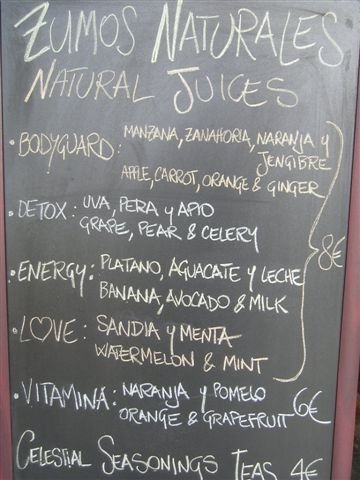 ZUMOS NATURALES
NATURAL JUICES
• BODYGUARD: MANZANA, ZANAHORIA, NARANJA y
JENGIBRE
APPLE, CARROT, ORANGE & GINGER
• DETOX: UVA, PERA y APIO
GRAPE, PEAR & CELERY
8€
• ENERGY: PLATANO, AGUACATE y LECHE
BANANA, AVOCADO & MILK
• LOVE: SANDIA y MENTA
WATERMELON & MINT
• VITAMINA: NARANJA y POMELO 6€
ORANGE & GRAPEFRUIT
CELESTIAL SEASONINGS TEAS 4€